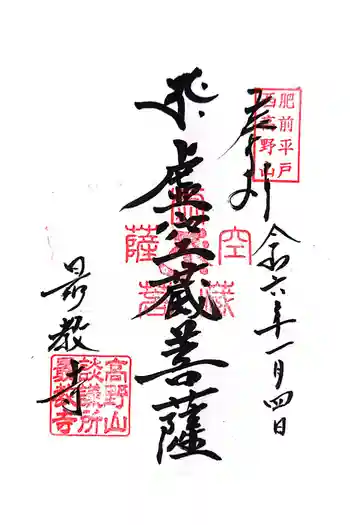 奉拝
肥前平戸
西高野山
令和六年一月四日
虚空蔵菩薩
虚空蔵菩薩
最教寺
高野山
談議所
最教寺